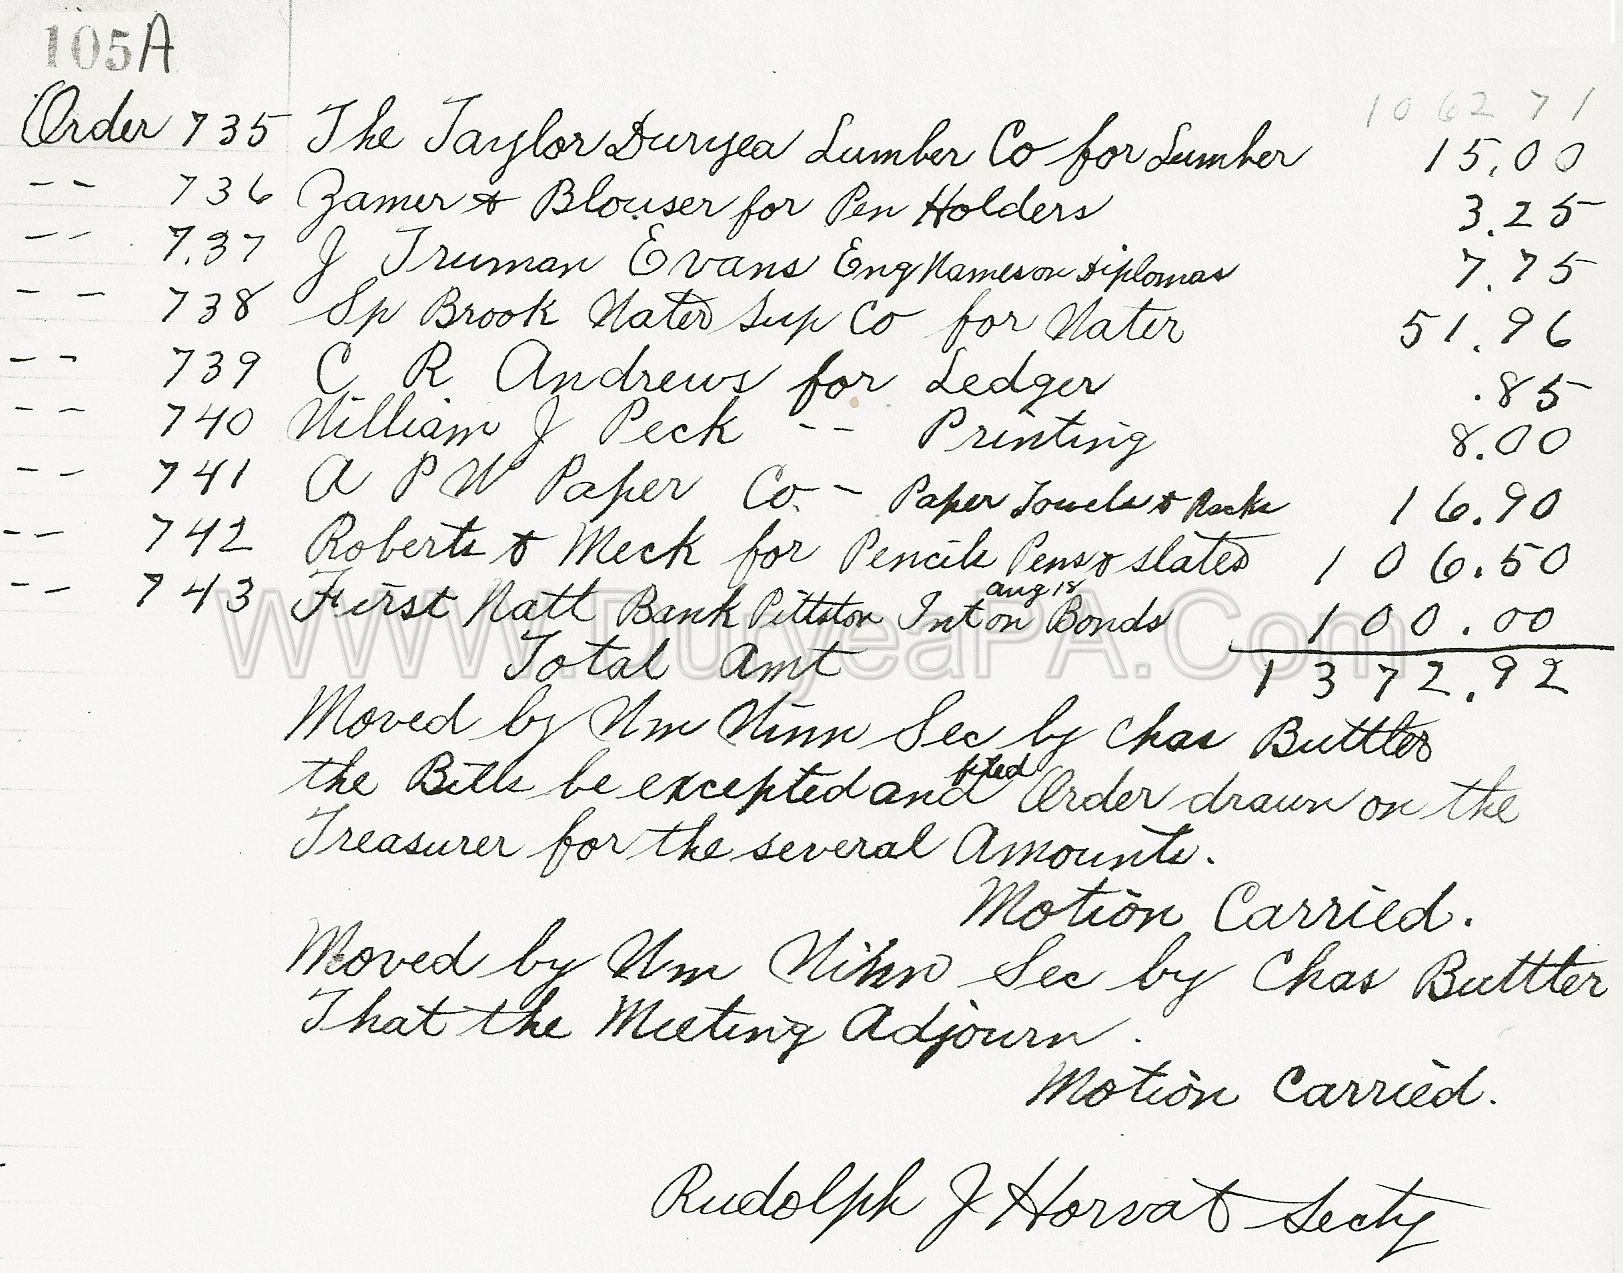 105A
106271
Order 735 The Taylor Duryea Lumber Co for Lumber 15.00
-- 736 Zamer & Blouser for Pen Holders 3.25
-- 737 J Truman Evans Eng Names on Diplomas 7.75
-- 738 Sp Brook Water Sup Co for Water 51.96
-- 739 C R Andrews for Ledger .85
-- 740 William J Peck -- Printing 8.00
-- 741 A P W Paper Co. - Paper Towels & Racks 16.90
-- 742 Roberts & Meck for Pencils Pens & slates 106.50
-- 743 First Natl Bank Pittston Int on Aug 18 Bonds 100.00
Total Amt 1372.92
Moved by Wm Winn Sec by Chas Buttler
the Bills be excepted and filed Order drawn on the
Treasurer for the several Amounts.
Motion Carried.
Moved by Wm Winn Sec by Chas Buttler
That the Meeting Adjourn.
Motion Carried.
Rudolph J Horvat Secty
www.DuryeaPA.Com